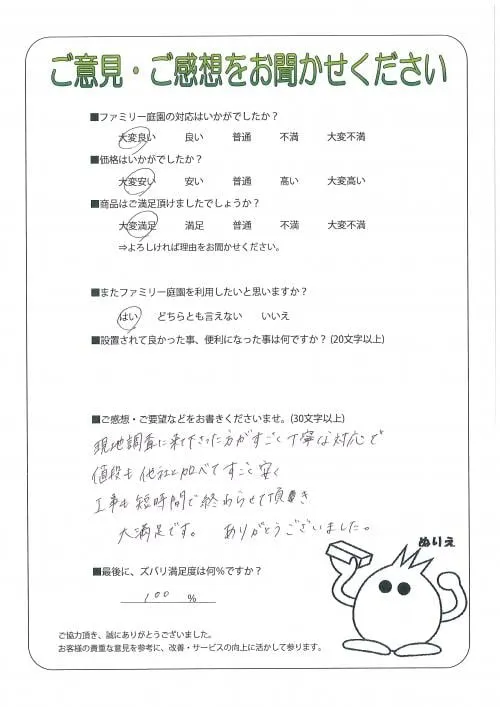 ご意見・ご感想をお聞かせください
■ファミリー庭園の対応はいかがでしたか？
大変良い 良い 普通 不満 大変不満
■価格はいかがでしたか？
大変安い 安い 普通 高い 大変高い
■商品はご満足頂けましたでしょうか？
大変満足 満足 普通 不満 大変不満
⇒よろしければ理由をお聞かせください。
■またファミリー庭園を利用したいと思いますか？
はい どちらとも言えない いいえ
■設置されて良かった事、便利になった事は何ですか？(20文字以上)
■ご感想・ご要望などをお書きくださいませ。(30文字以上)
現地調査に来て下さった方がすごく丁寧な対応で
値段も他社と比べてすごく安く
工事も短時間で終わらせて頂き
大満足です。 ありがとうございました。
ぬりえ
■最後に、ズバリ満足度は何%ですか？
100 %
ご協力頂き、誠にありがとうございました。
お客様の貴重な意見を参考に、改善・サービスの向上に活かして参ります。